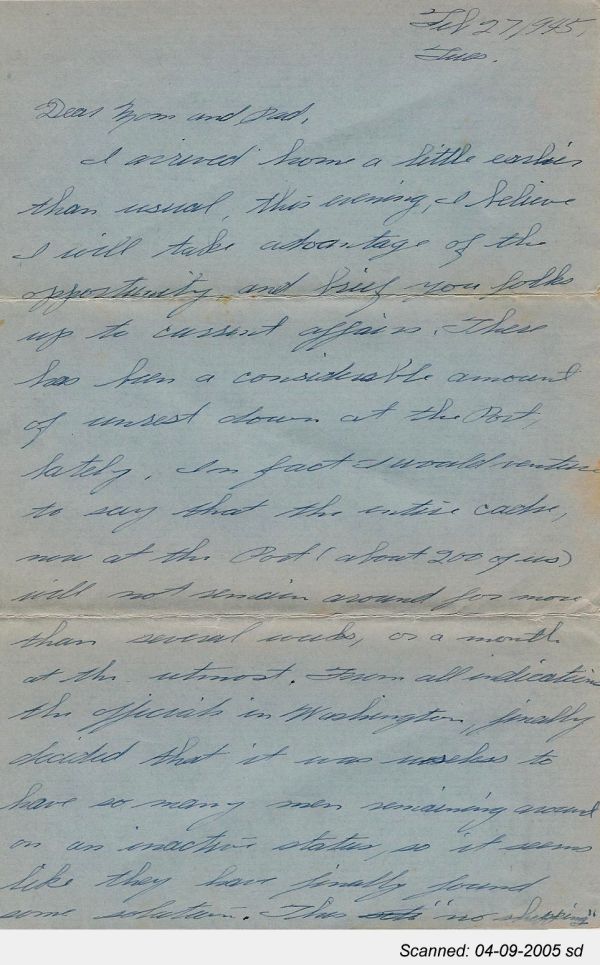 Feb 27, 1945,
Tues.
Dear Mom and Dad,
I arrived home a little earlier
than usual, this evening, I believe
I will take advantage of the
opportunity and brief you folks
up to current affairs. There
has been a considerable amount
of unrest down at the Port,
lately. In fact I would venture
to say that the entire cadre,
now at the Port (about 200 of us)
will not remain around for more
than several weeks, or a month
at the utmost. From all indications
the officials in Washington, finally
decided that it was useless to
have so many men remaining around
on an inactive status, so it seems
like they have finally found
some solution. This "no shipping"
Scanned: 04-09-2005 sd